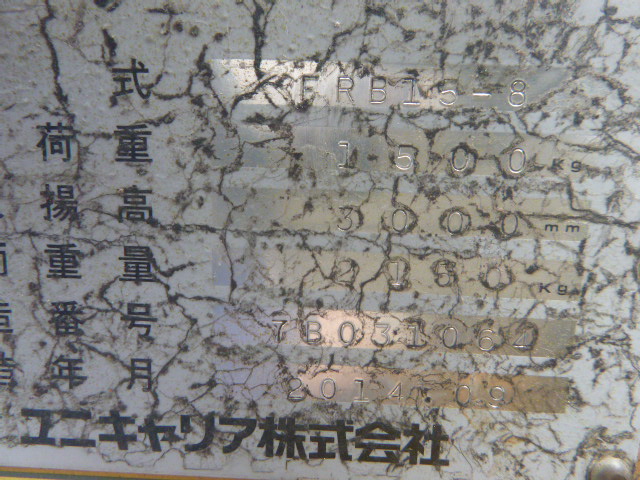 式 FRB15-8
荷重 1500 Kg
揚高 3000 mm
重量 2150 Kg
番号 7B031064
年月 2014.09
ユニキャリア株式会社